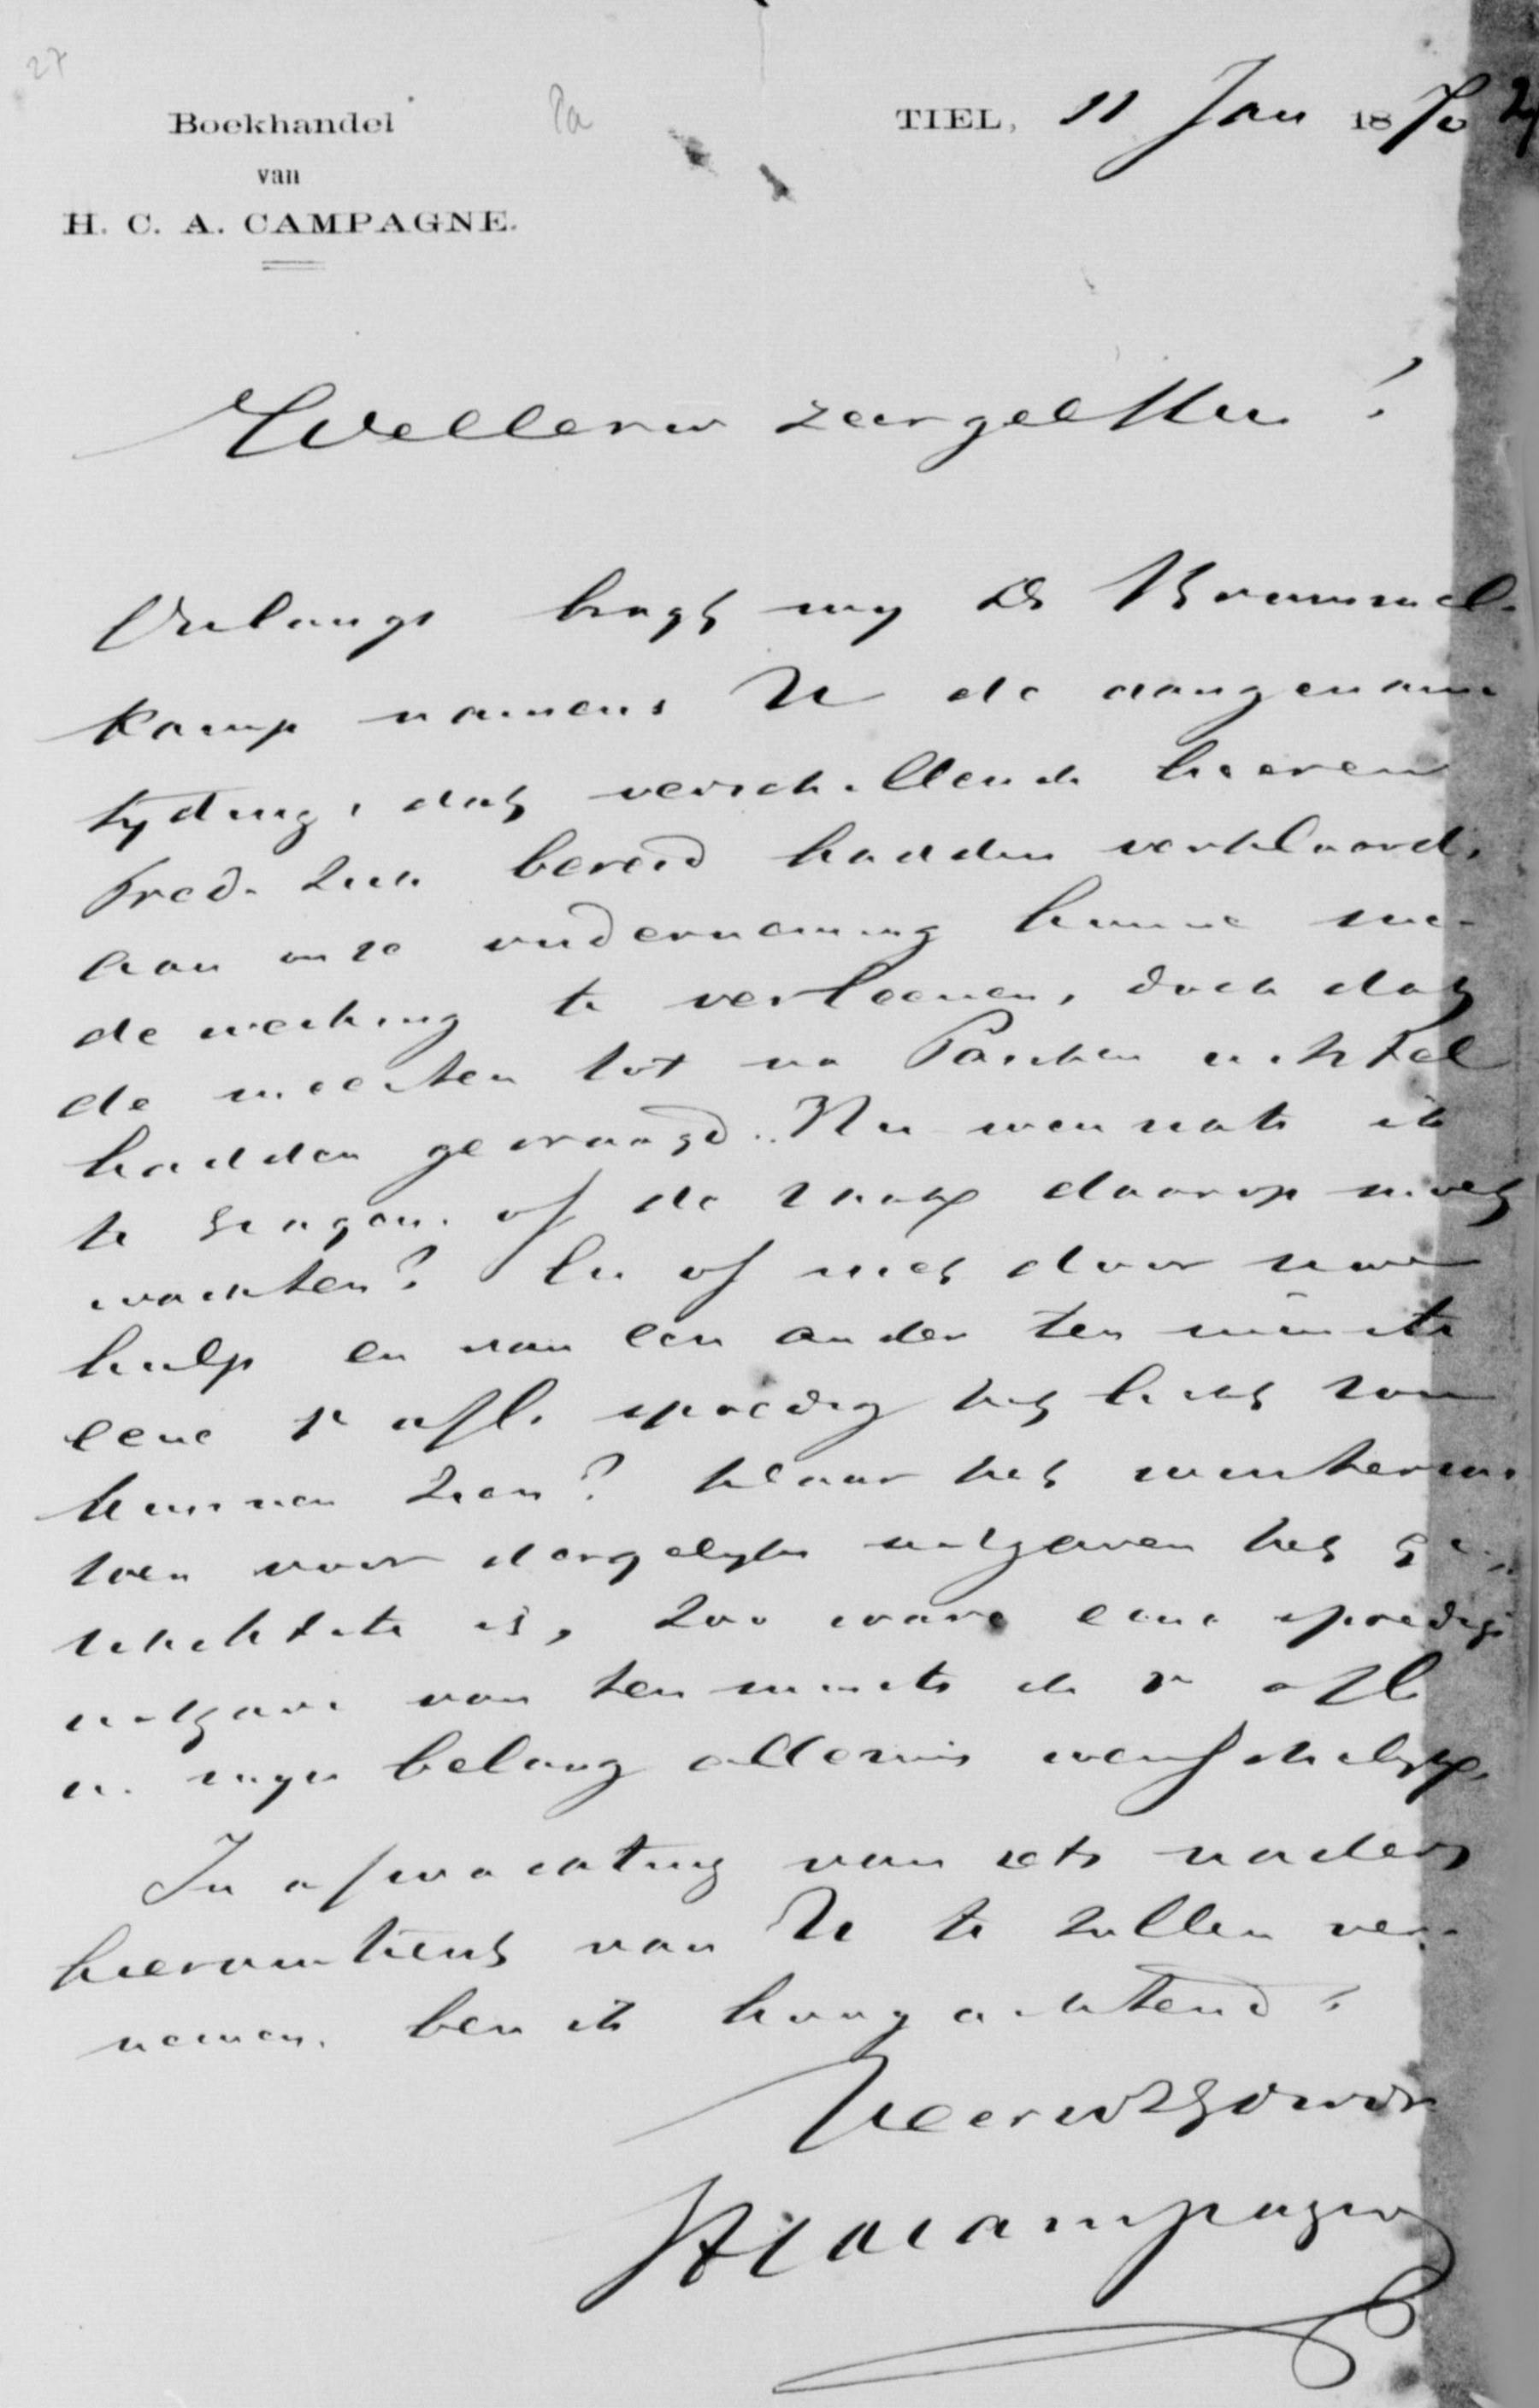 27
Boekhandel
van
H. C. A. CAMPAGNE.
TIEL, 11 Jan 1870
Weleerw zeergel Heer!
Onlangs bragt my Ds Brummel-
kamp namens U de aangename
tyding, dat verschillende heeren
Pred. zich bereid hadden verklaard,
aan onze onderneming hunne me-
dewerking te verleenen, doch dat
de meesten tot na Paschen uitstel
hadden gevraagd. Nu wenschte ik
te vragen, of de zaak daarop moet
wachten? En of niet door uwe
hulp en van een ander ten minste
eene 1e afl. spoedig het licht zou
kunnen zien? Daar het wintersei-
zoen voor dergelyke uitgaven het ge-
schiktste is, zoo ware eene spoedige
uitgave van ten minste de 1e afl
in myn belang allezins wenschelyk.
In afwachting van iets naders
hieromtrent van U te zullen ver-
nemen, ben ik hoogachtend,
UeerwZgDwDr
HCACampagne